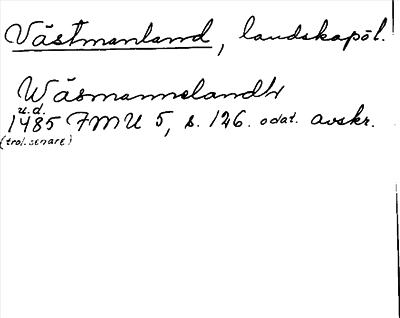 Västmanland, landskapöl.
Wäsmannelandh
u.d.
1485 FMU 5, s. 126. odat. avskr.
(trol. senare)